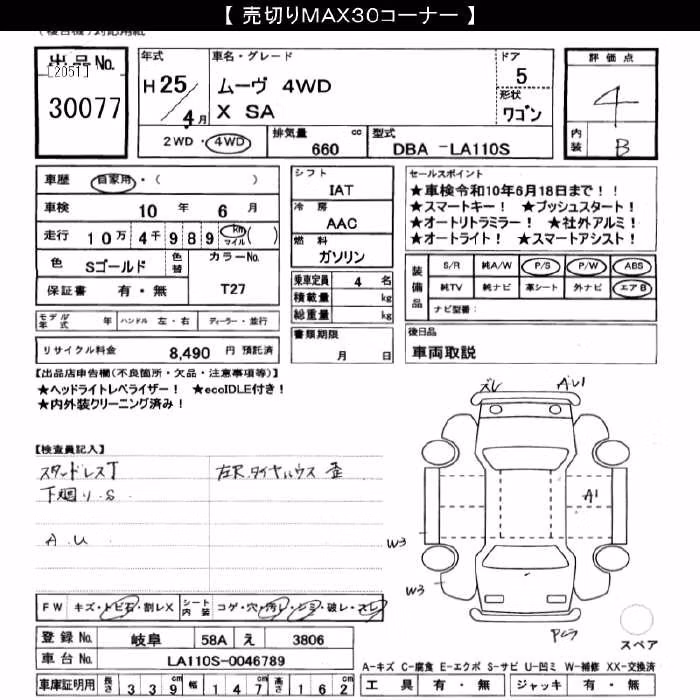 【 売切りMAX30コーナー 】
出品No.
[2051]
30077
年式
H 25/4月
車名・グレード
ムーヴ 4WD
X SA
ドア
5
形状
ワゴン
2WD・4WD
排気量 660 cc
型式 DBA -LA110S
評価点
4
内装
B
車歴 自家用・( )
車検 10 年 6 月
走行 10万 4千 9 8 9 km マイル ( )
色 Sゴールド 色替
カラーNo.
T27
保証書 有・無
シフト
IAT
冷房
AAC
燃料
ガソリン
乗車定員 4 名
積載量 kg
総重量 kg
書類期限
月 日
セールスポイント
★車検令和10年6月18日まで!!
★スマートキー! ★プッシュスタート!
★オートリトラミラー! ★社外アルミ!
★オートライト! ★スマートアシスト!
装備品
S/R 純A/W P/S P/W ABS
純TV 純ナビ 革シート 外ナビ エアB
ナビ型番:
モデル年式 年 ハンドル 左・右 ディーラー・並行
リサイクル料金 8,490 円 預託済
後日品
車両取説
【出品店申告欄(不良箇所・欠品・注意事項等)】
★ヘッドライトレベライザー! ★ecoIDLE付き!
★内外装クリーニング済み!
【検査員記入】
スタッドレスT
下廻り.S
A.U
左R.タイヤハウス 歪
ズレ
A1
A1
W3
W3
スペア
FW キズ・トビ石・割レX シート内装 コゲ・穴・汚レ・シミ・破レ・スレ
登録No. 岐阜 58A え 3806
車台No. LA110S-0046789
車庫証明用 長さ 3 3 9 cm 幅 1 4 7 cm 高さ 1 6 2 cm
A-キズ C-腐食 E-エクボ S-サビ U-凹ミ W-補修 XX-交換済
工具 有・無 ジャッキ 有・無